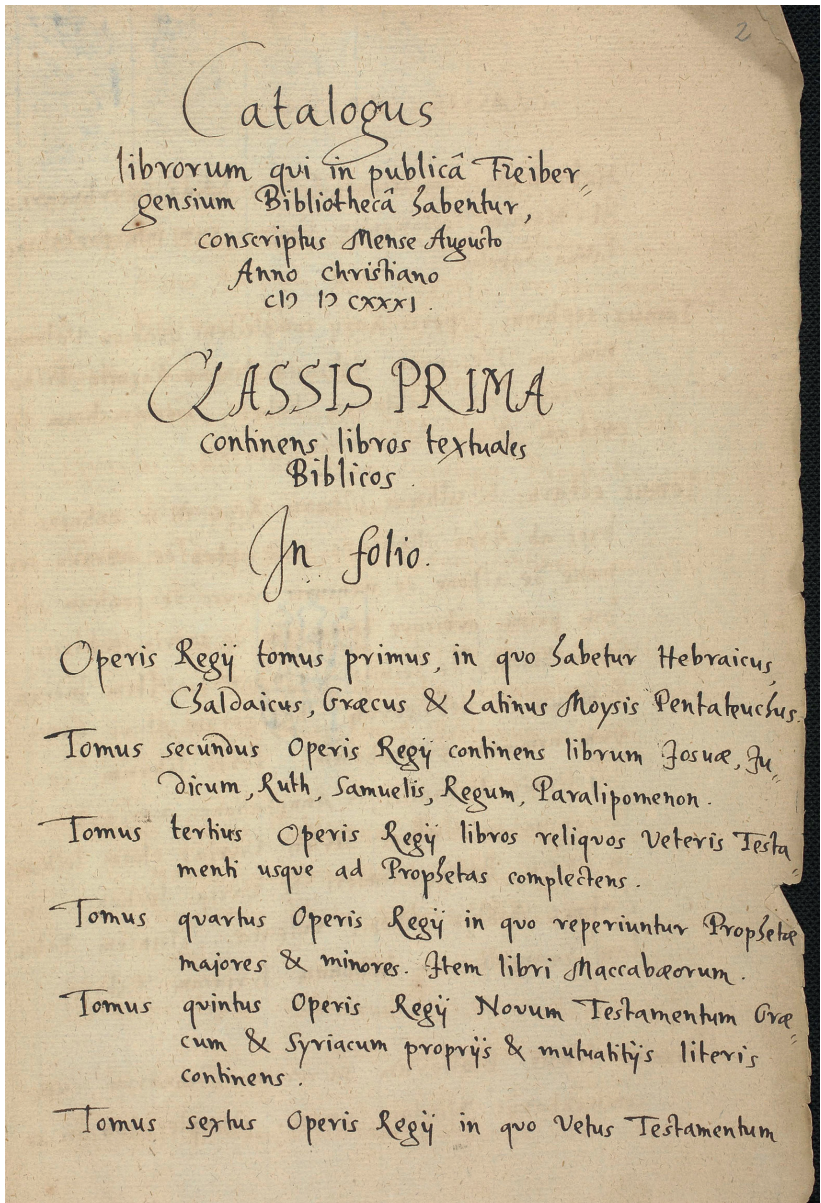 2
Catalogus
librorum qui in publicâ Freiber=
gensium Bibliothecâ habentur,
conscriptus Mense Augusto
Anno christiano
cIↃ IↃ CXXXI.
CLASSIS PRIMA
continens libros textuales
Biblicos.
In folio.
Operis Regij tomus primus, in quo habetur Hebraicus,
Chaldaicus, Græcus & Latinus Moysis Pentateuchus.
Tomus secundus Operis Regij continens librum Josuæ, Ju=
dicum, Ruth, Samuelis, Regum, Paralipomenon.
Tomus tertius Operis Regij libros reliquos Veteris Testa
menti usque ad Prophetas complectens.
Tomus quartus Operis Regij in quo reperiuntur Prophetæ
majores & minores. Item libri Maccabæorum.
Tomus quintus Operis Regij Novum Testamentum Græ=
cum & Syriacum proprijs & mutuatitijs literis
continens.
Tomus sextus Operis Regij in quo Vetus Testamentum